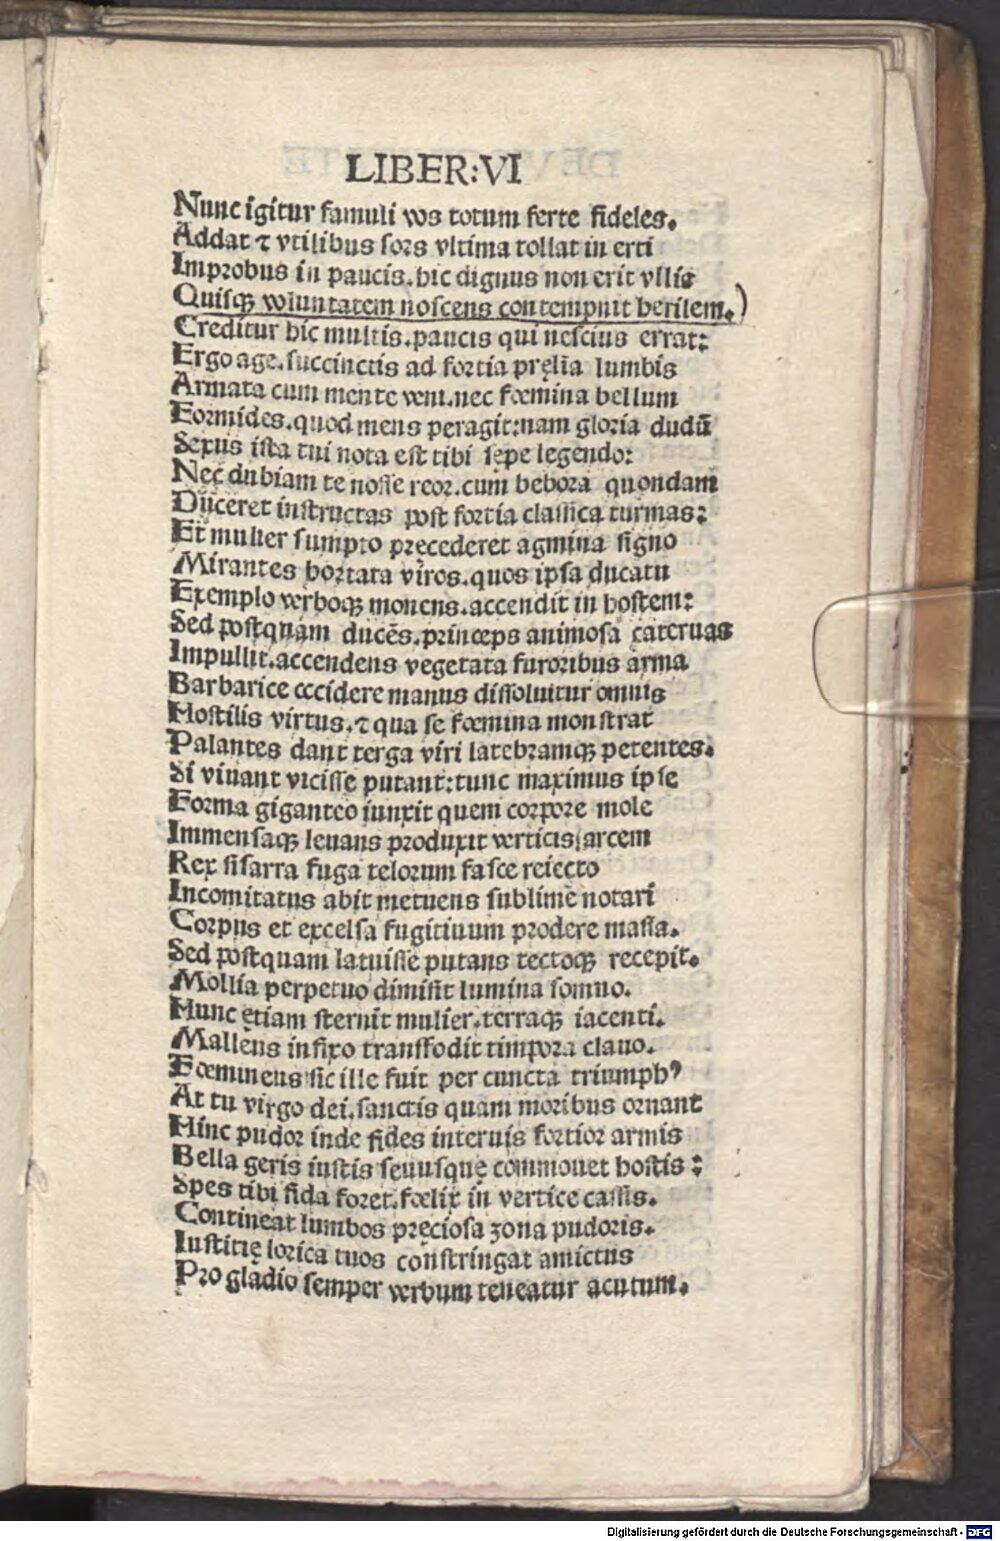 LIBER:VI
Nunc igitur famuli vos totum ferte fideles.
Addat ⁊ vtilibus sors vltima tollat in erti
Improbus in paucis.hic dignus non erit vllis
Quisqꝫ voluntatem noscens contempnit herilem.)
Creditur hic multis.paucis qui nescius errat:
Ergo age.succinctis ad fortia pręlia lumbis
Armata cum mente veni.nec fœmina bellum
Formides.quod mens peragit:nam gloria dudū
Sexus ista tui nota est tibi sępe legendo:
Nec dubiam te nosse reor.cum debora quondam
Dūceret instructas post fortia classica turmas:
Et mulier sumpto pręcederet agmina signo
Mirantes hortata viros.quos ipsa ducatu
Exemplo verboqꝫ monens.accendit in hostem:
Sed postquam ducēs.princeps animosa cateruas
Impullit.accendens vegetata furoribus arma
Barbarice cccidere manus dissoluitur omnis
Hostilis virtus.⁊ qua se fœmina monstrat
Palantes dant terga viri latebramqꝫ petentes.
Si viuant vicisse putant:tunc maximus ipse
Forma giganteo iunxit quem corpore mole
Immensaqꝫ leuans produxit verticis arcem
Rex sisarra fuga telorum fasce reiecto
Incomitatus abit metuens sublime notari
Corpus et excelsa fugitiuum prodere massa.
Sed postquam latuisse putans tectoqꝫ recepit.
Mollia perpetuo dimisit lumina somno.
Hunc etiam sternit mulier.terraqꝫ iacenti.
Malleus infixo transfodit timpora clauo.
Fœmineus sic ille fuit per cuncta triumphꝰ
At tu virgo dei.sanctis quam moribus ornant
Hinc pudor inde fides interuis fortior armis
Bella geris iustis seuusquę commouet hostis:
Spes tibi fida foret.fœlix in vertice cassis.
Contineat lumbos pręciosa zona pudoris.
Iustitię lorica tuos constringat amictus
Pro gladio semper verbum teneatur acutum.
Digitalisierung gefördert durch die Deutsche Forschungsgemeinschaft - DFG